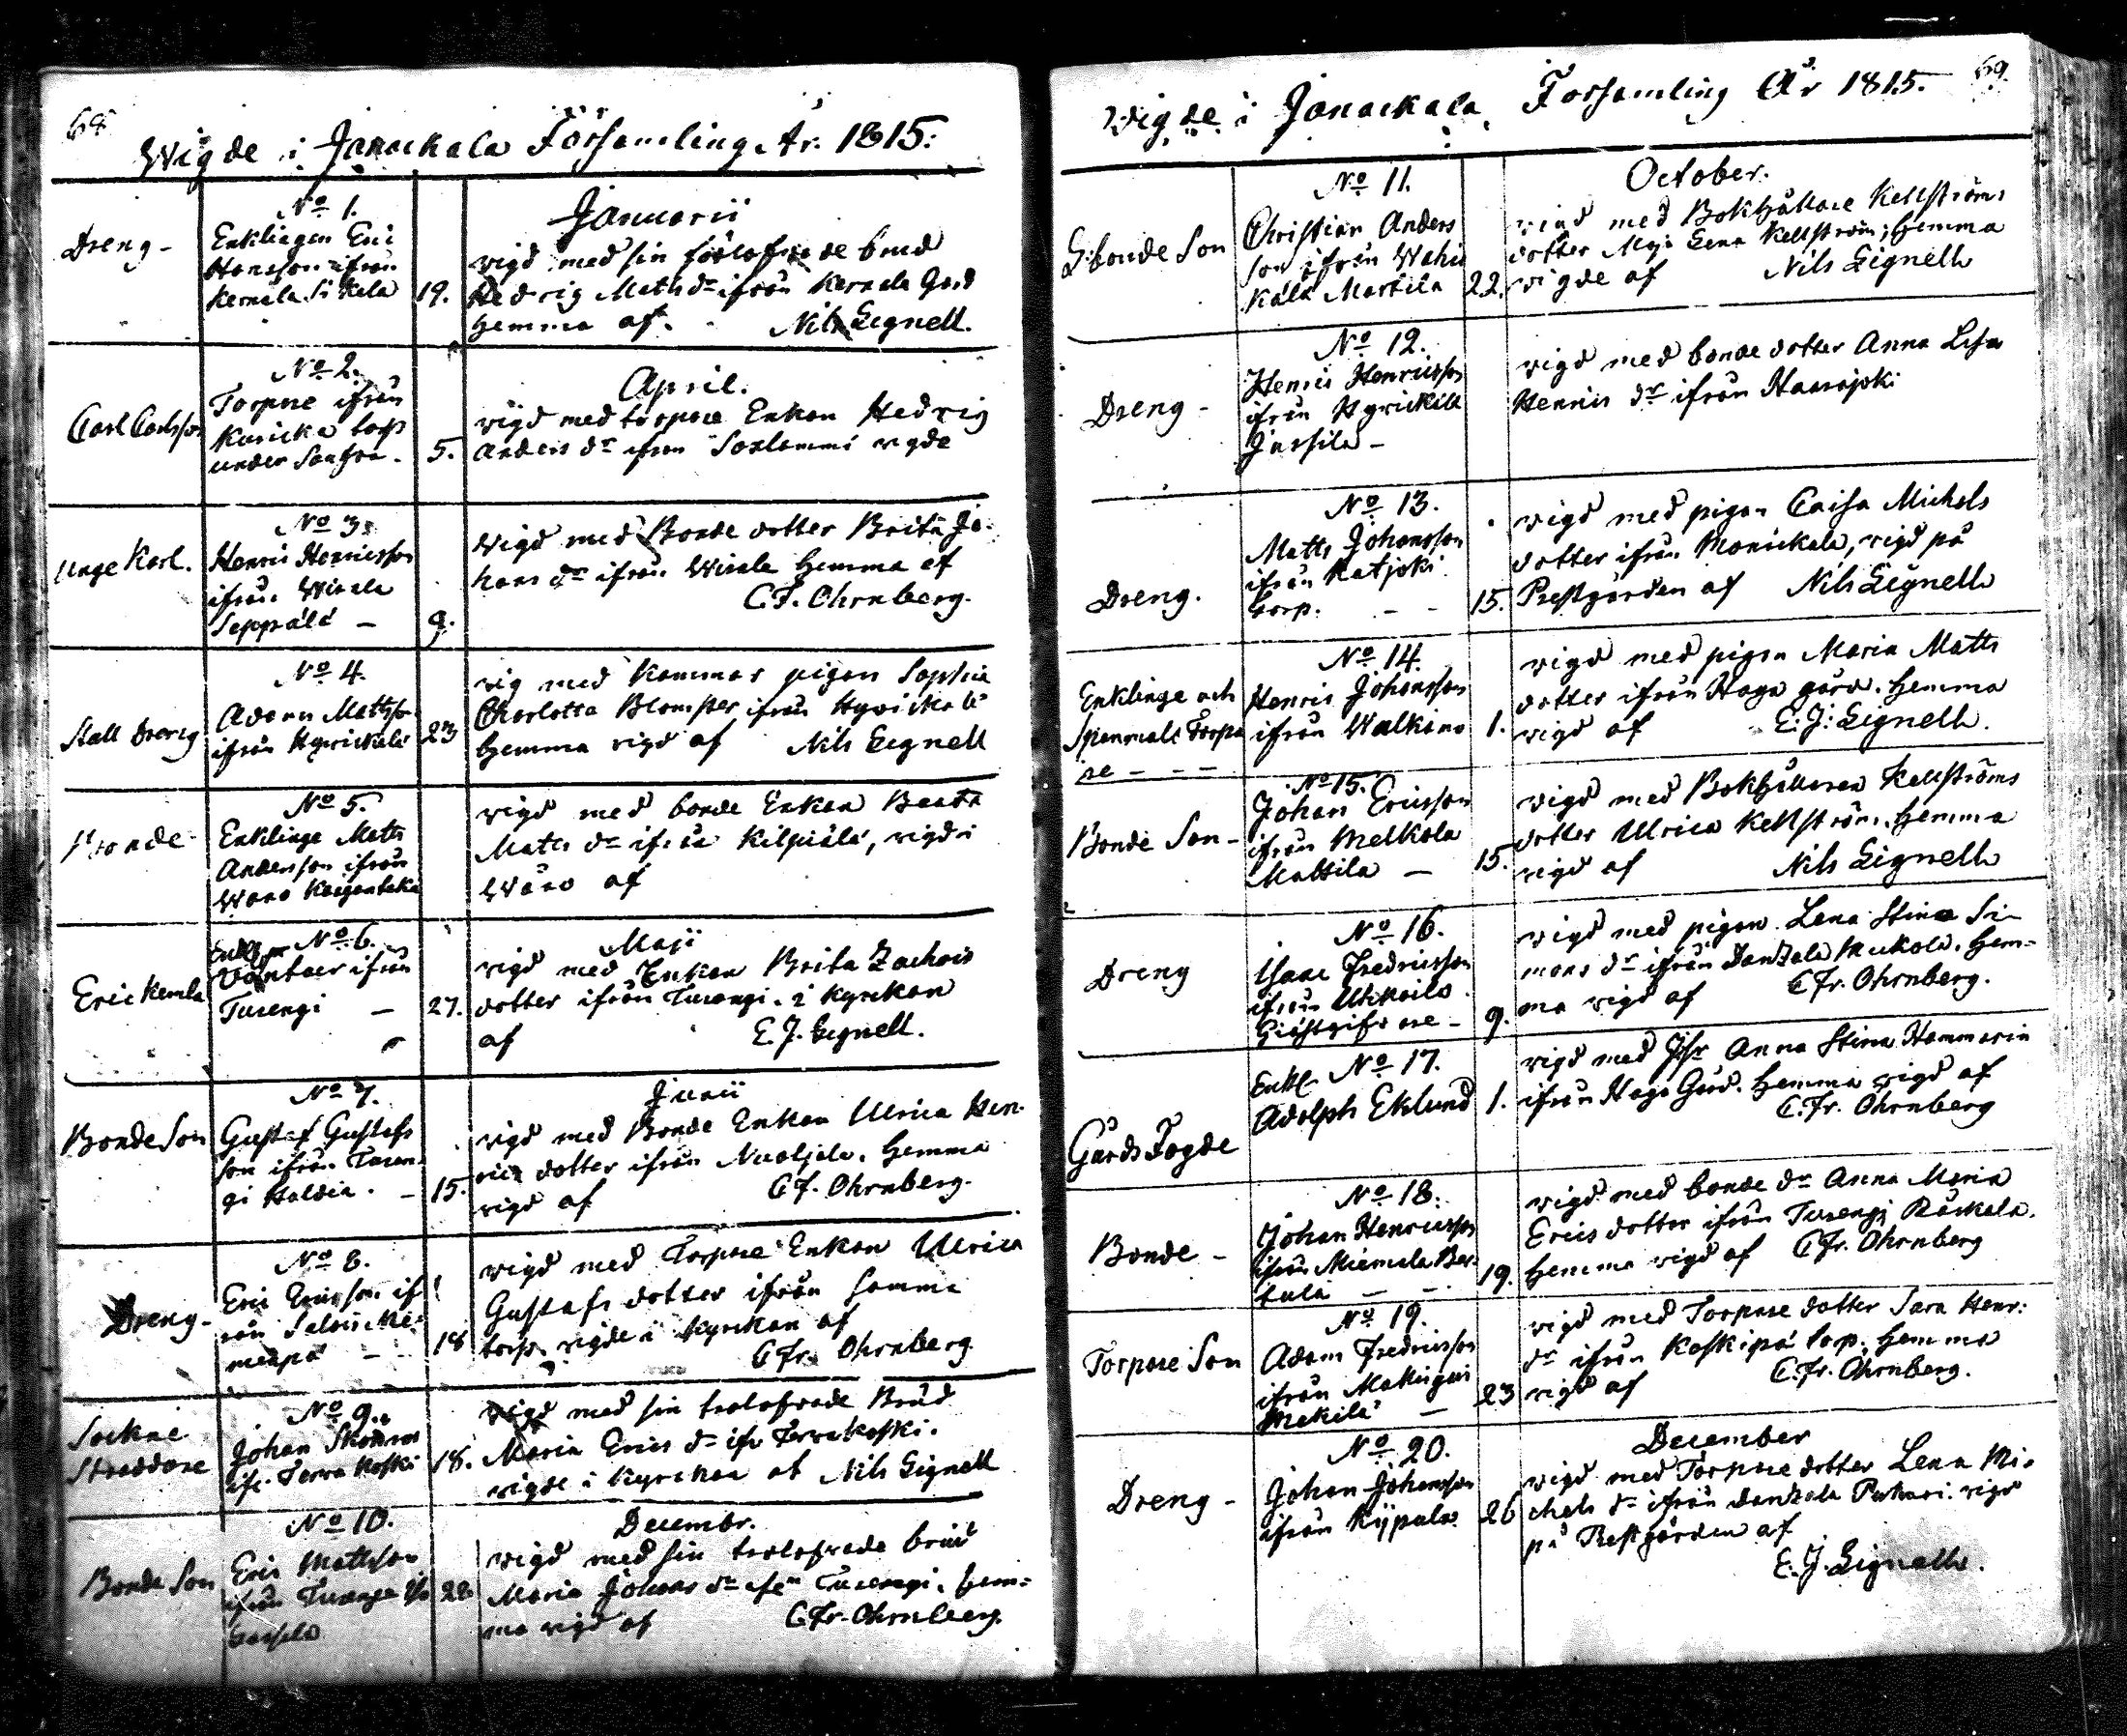 68
Wigde i Janackala Församling År. 1815.
Januarii
Dreng -
No 1.
Enklingen Eric
Hansson ifrån
Kernala Sikala
19.
vigd med sin förlofvade brud
Hedvig Matsdr ifrån Kernala Gård
hemma af. Nils Lignell.
April.
Carl Carlsson
No 2.
Torpare ifrån
Karicka torp
under
5.
vigd med torpare Enkan Hedvig
Anders dr ifrån vigde
Unge Karl.
No 3.
Henric Henricsson
ifrån Wirala
Seppälä -
9.
vigd med Bonde dotter Brita Jo
hans dr ifrån Wirala hemma af
C.F. Ohrnberg.
Stall Dreng
No 4.
Adam Mattsson
ifrån Hyvickälä
23
vig med Kammar pigan Sophia
Charlotta Blomster ifrån Hyvickälä
hemma vigd af Nils Lignell
Bonde
No 5.
Enklinge Matts
Andersson ifrån
Wano
vigd med bonde Enkan Beata
Matts dr ifrån Kilpiälä, vigd i
Wåno af
Maji
Eric Kernla
No 6.
ifrån
Turengi -
27.
vigd med Enkan Brita Zachris
dotter ifrån Turengi. i Kyrckan
af E. J. Lignell.
Junii
Bonde Son
No 7.
Gustaf Gustafs
son ifrån Turen
gi Haldia. -
15.
vigd med Bonde Enkan Ulrica Hen
rics dotter ifrån hemma
vigd af C.F. Ohrnberg.
Dreng -
No 8.
Eric Ericsson if
rån
18
vigd med Torpare Enkan Ulrica
Gustafs dotter ifrån samma
torp. vigde i Kyrckan af
C. Fr. Ohrnberg
Sockne
Skreddare
No 9.
Johan
ifr. Terva Koski
18.
vigd med sin trolofvade Brud
Maria Erics dr ifr Tervakoski.
vigde i Kyrckan af Nils Lignell
Decembr.
Bonde Son
No 10.
Eric Mattsson
ifrån
vigd med sin trolofvade brud
Maria Johans dr ifrn Turengi. hem=
ma vigd af C. Fr. Ohrnberg.
69.
Vigde i Janackala Församling År 1815.
October.
Bonde Son
No 11.
Christian Anders
son ifrån Wahi
kälä Martila
22.
vigd med Bokhållare Kellströms
dotter Maja Lena Kellström; hemma
vigde af Nils Lignell
Dreng -
No 12.
Henric Henricsson
ifrån Hyvickälä
Jussila -
vigd med bonde dotter Anna Lisa
Henrics dr ifrån Haarajoki
Dreng.
No 13.
Matts Johansson
ifrån Katjoki
torp. - -
15.
vigd med pigan Caisa Michels
dotter ifrån Monickala, vigd på
Prestgården af Nils Lignell
Enklinge och
Spanmåls Torpa
re - - -
No 14.
Henric Johansson
ifrån Walkama
1.
vigd med pigan Maria Matts
dotter ifrån Haga gård. hemma
vigd af E. J. Lignell.
Bonde Son -
No 15.
Johan Ericsson
ifrån Melkola
Mattila -
15.
vigd med Bokhållaren Kellströms
dotter Ulrica Kellström. hemma
vigd af Nils Lignell
Dreng
No 16.
Isaac Fredricsson
ifrån Uhkoila
Gästgifvare -
9.
vigd med pigan Lena Stina Si
mons dr ifrån Dankala Muckola. hem=
ma vigd af C Fr. Ohrnberg.
Gårds Fogde
No 17.
Enkl
Adolph Eklund
1.
vigd med Jfr Anna Stina Hammarin
ifrån Haga Gård. hemma vigd af
C. Fr. Ohrnberg
Bonde -
No 18.
Johan Henricsson
ifrån Miemala Ber
tula - -
19.
vigd med bonde dr Anna Maria
Erics dotter ifrån Turengi
hemma vigd af C Fr. Ohrnberg
Torpare Son
No 19.
Adam Fredricsson
ifrån
Mekilä -
23
vigd med Torpare dotter Sara Henr:
dr ifrån Koskipä torp. hemma
vigd af C. Fr. Ohrnberg.
December
Dreng -
No 20.
Johan Johansson
ifrån
26
vigd med Torpare dotter Lena Mi
chels dr ifrån Dankala vigd
på Prestgården af
E. J. Lignell.